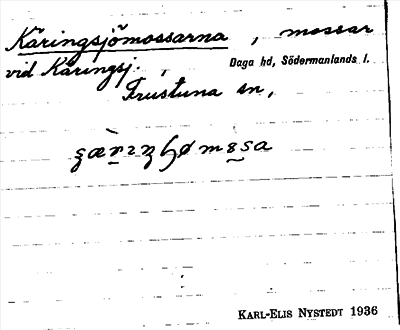 Käringsjömossarna, mossar
vid Käringsj.,
Daga hd, Södermanlands l.
Frustuna sn,
KARL-ELIS NYSTEDT 1936